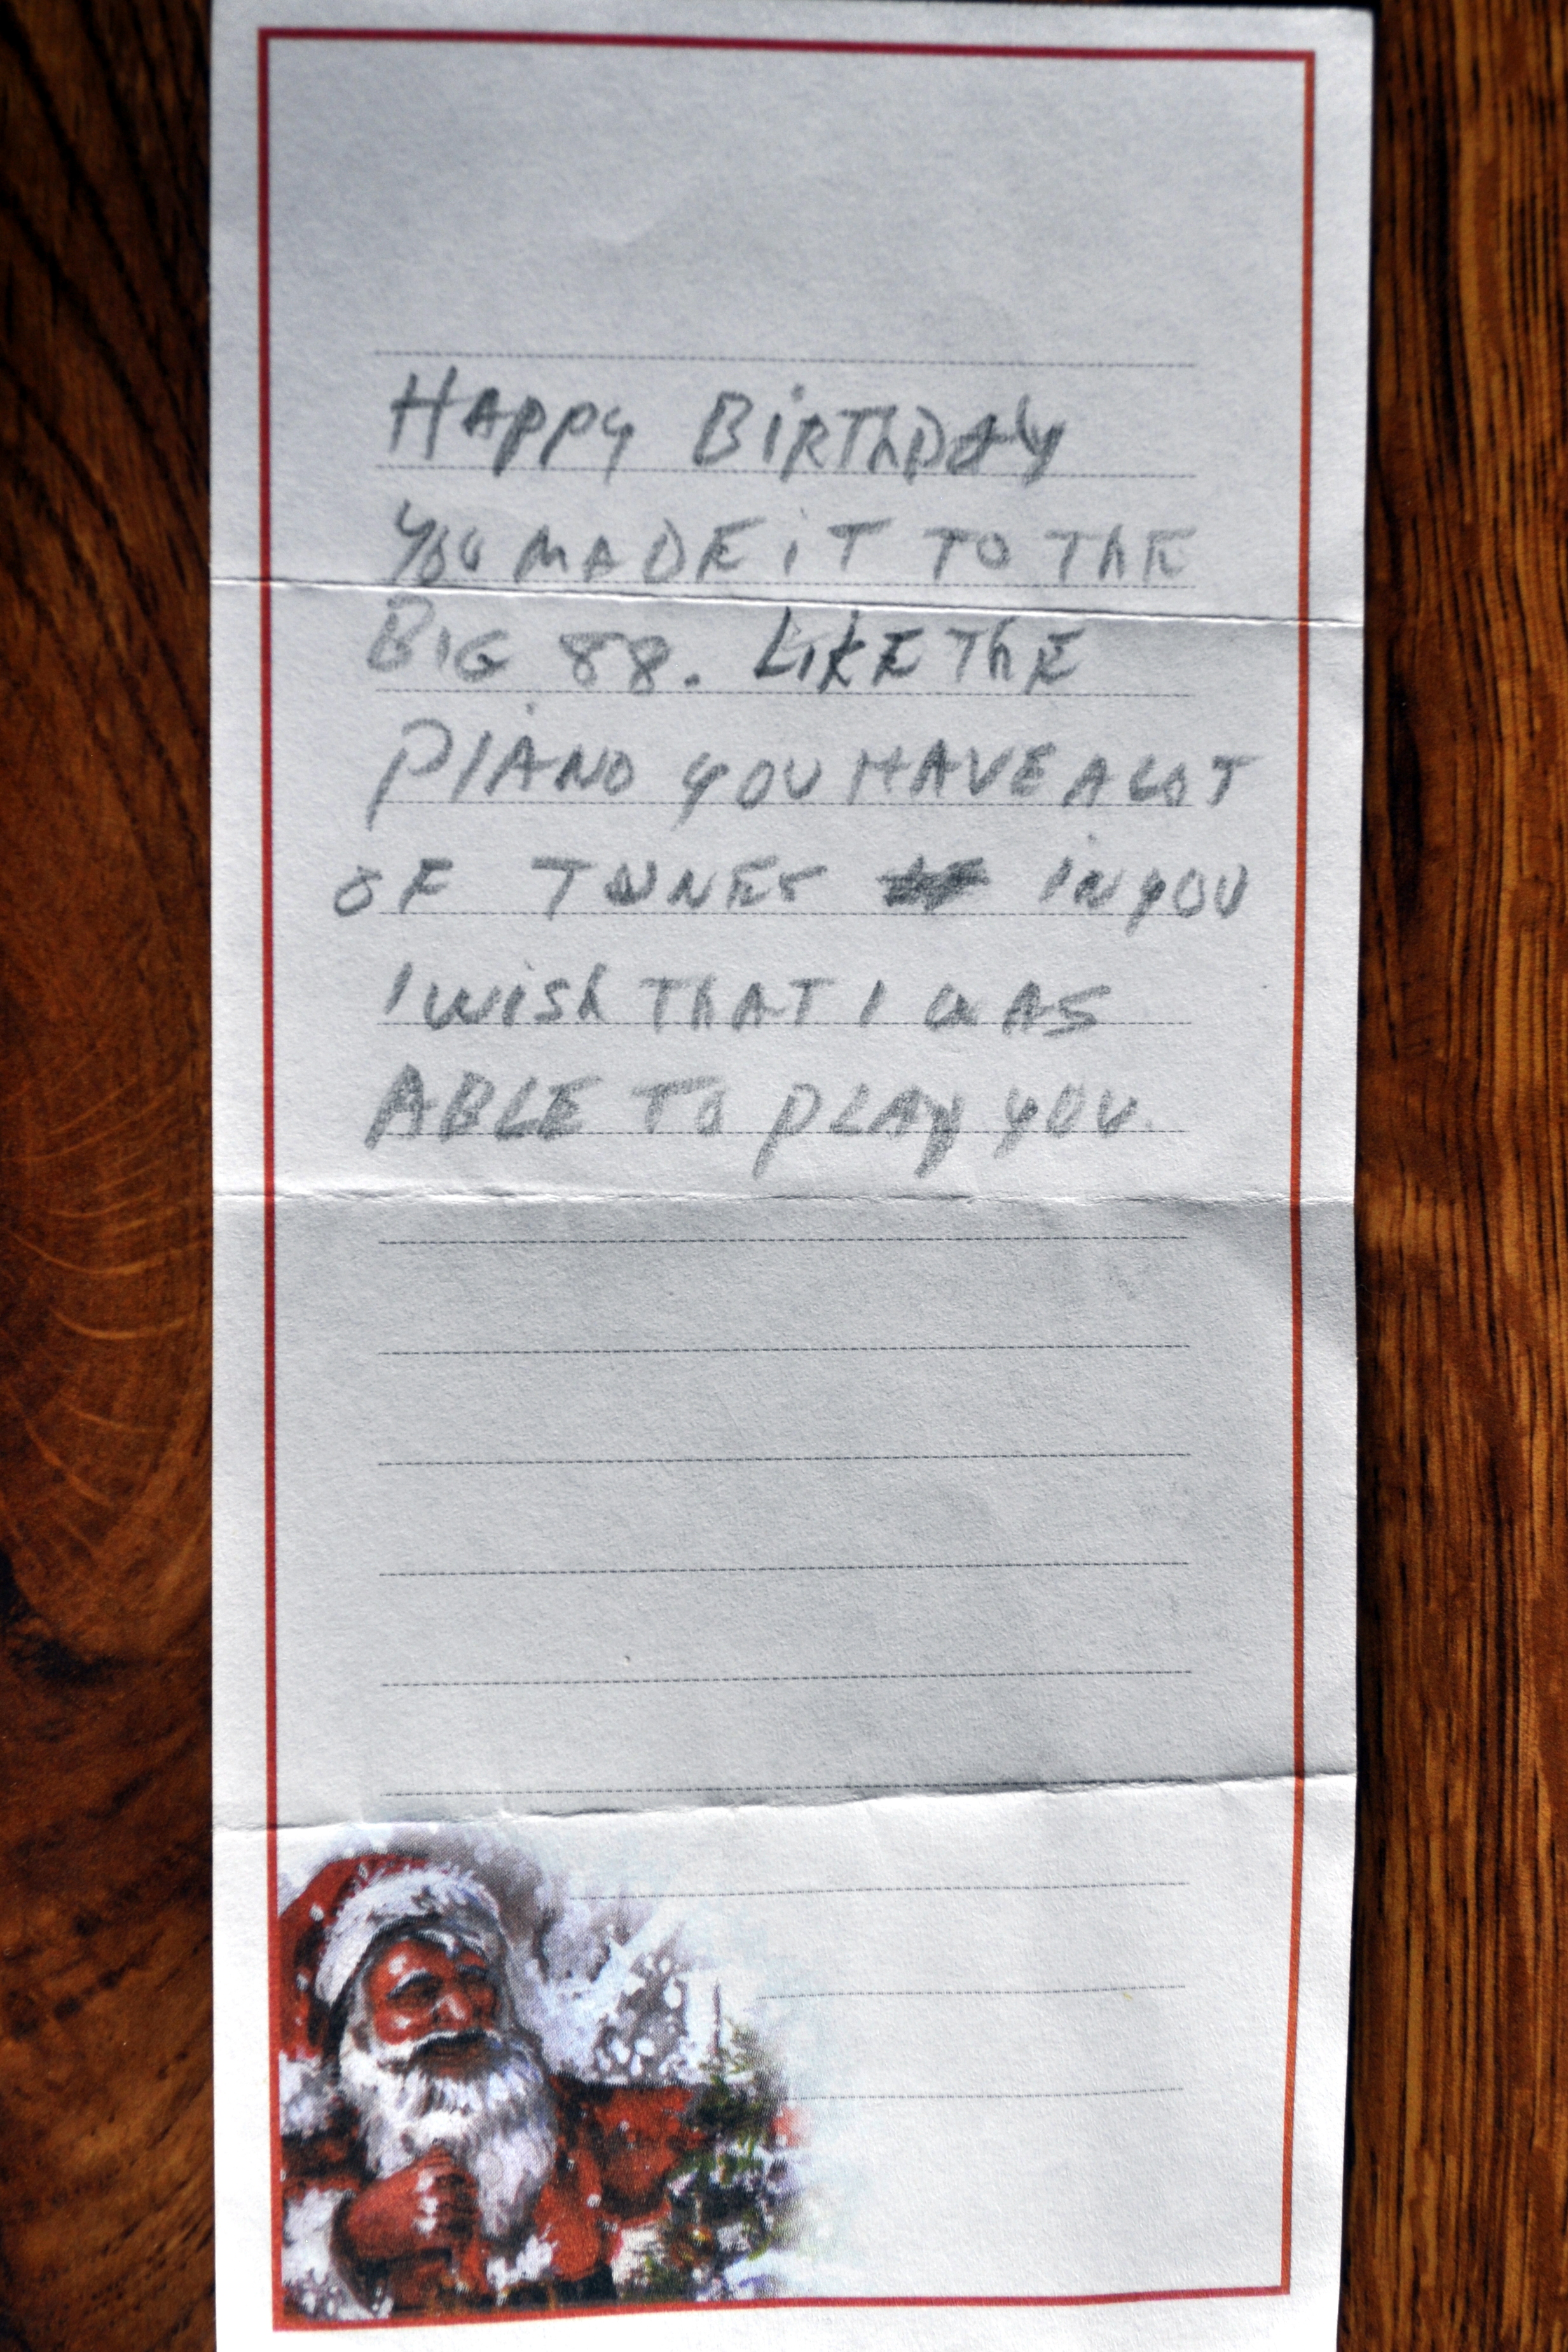 HAPPY BiRThDAY
YOU MADE iT TO ThE
BIG 88. LiKE ThE
PIANO YOU HAVE A LOT
OF TUNES IN YOU
I WISh ThAT I WAS
ABLE TO PLAY YOU.